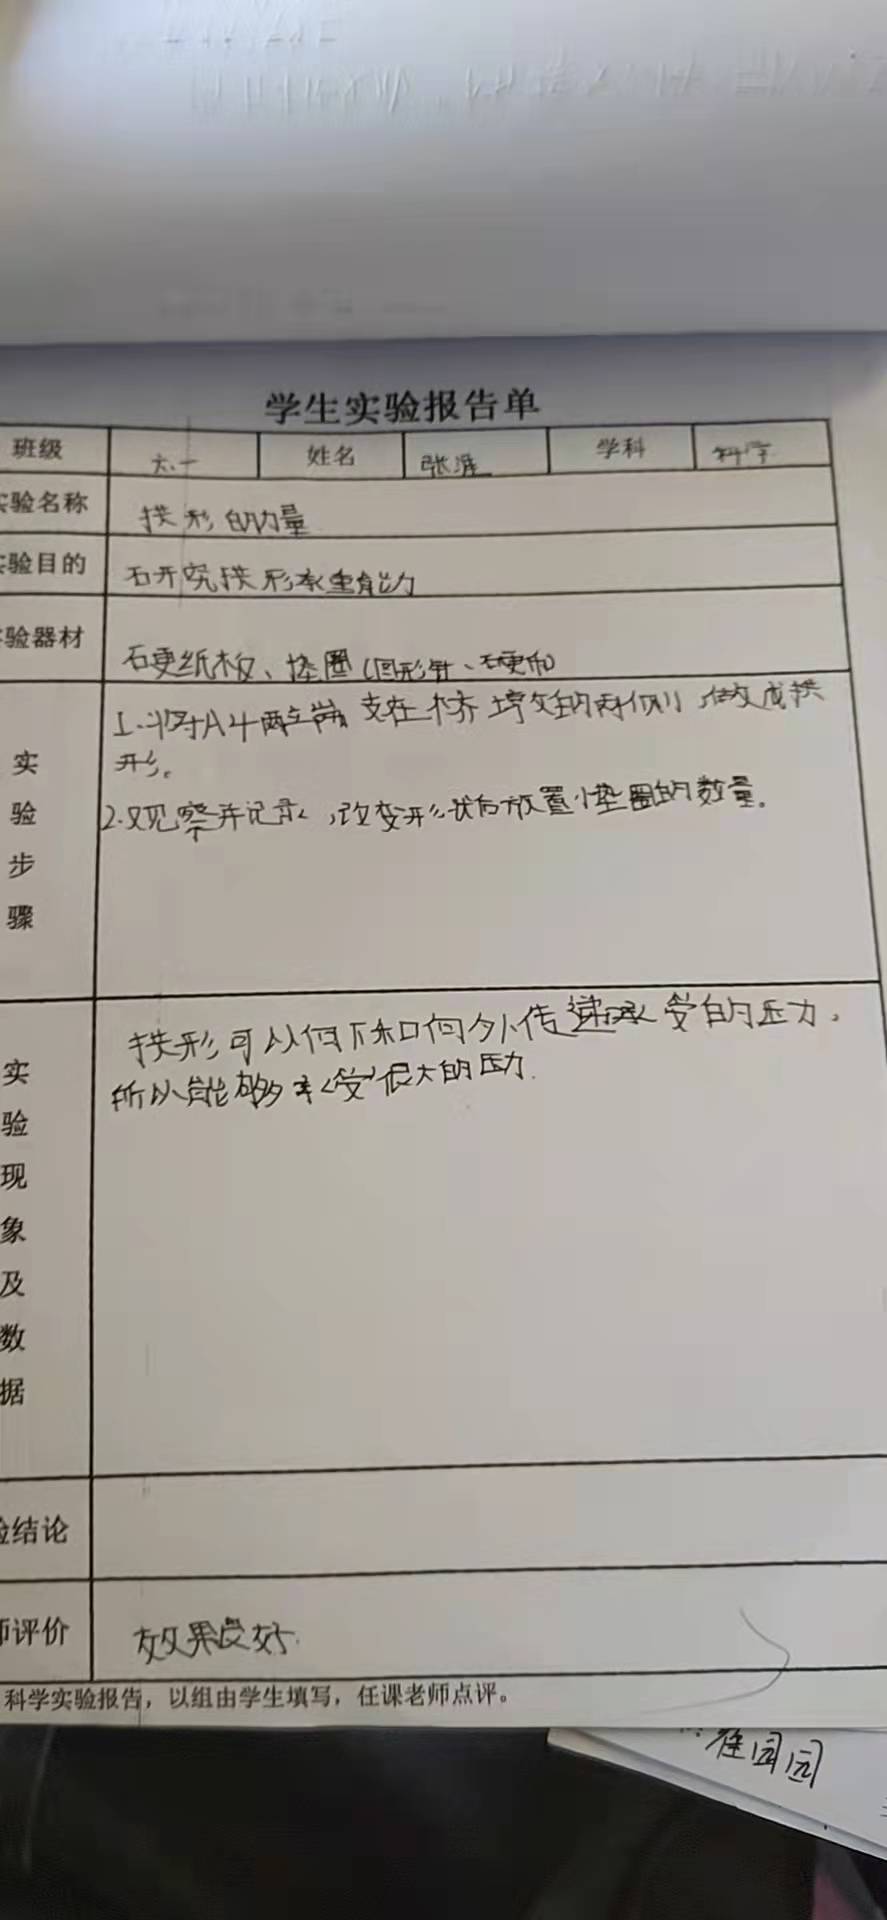 学生实验报告单
班级 六.一 姓名 张 学科 科学
实验名称 拱形的力量
实验目的 研究拱形承重能力
验器材 硬纸板、垫圈(回形针、硬币)
实验步骤
1.将A4两端支在木 的两侧,做成拱
形。
2.观察并记录,改变形状后放置小垫圈的数量。
实验现象及数据
拱形可以向下和向外传递承受的压力,
所以能够承受很大的压力.
验结论
师评价 效果良好.
科学实验报告,以组由学生填写,任课老师点评。
园园